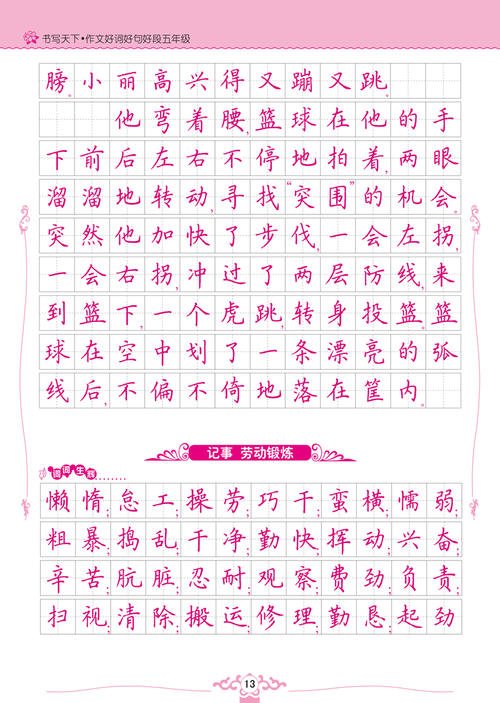 书写天下•作文好词好句好段五年级
膀。小丽高兴得又蹦又跳。
他弯着腰,篮球在他的手
下前后左右不停地拍着,两眼
溜溜地转动,寻找“突围”的机会。
突然他加快了步伐,一会左拐,
一会右拐,冲过了两层防线,来
到篮下,一个虎跳,转身投篮。篮
球在空中划了一条漂亮的弧
线后,不偏不倚地落在筐内。
记事 劳动锻炼
词词生辉
懒惰;怠工;操劳;巧干;蛮横;懦弱;
粗暴;捣乱;干净;勤快;挥动;兴奋;
辛苦;肮脏;忍耐;观察;费劲;负责;
扫视;清除;搬运;修理;勤恳;起劲
13